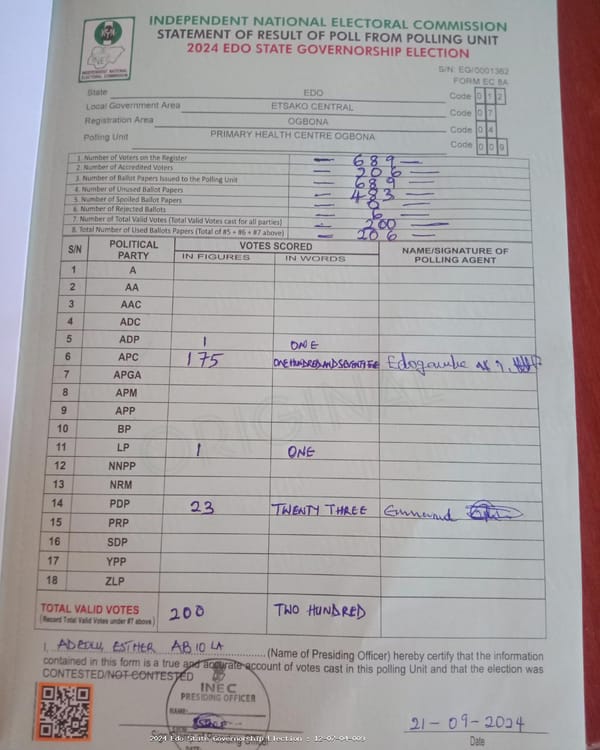 INDEPENDENT NATIONAL ELECTORAL COMMISSION
STATEMENT OF RESULT OF POLL FROM POLLING UNIT
2024 EDO STATE GOVERNORSHIP ELECTION
INEC
INDEPENDENT NATIONAL
ELECTORAL COMMISSION
S/N: EG/0001362
FORM EC 8A
State EDO Code 0 1 2
Local Government Area ETSAKO CENTRAL Code 0 7
Registration Area OGBONA Code 0 4
Polling Unit PRIMARY HEALTH CENTRE OGBONA Code 0 0 9
1. Number of Voters on the Register 689
2. Number of Accredited Voters 206
3. Number of Ballot Papers Issued to the Polling Unit 689
4. Number of Unused Ballot Papers 483
5. Number of Spoiled Ballot Papers 0
6. Number of Rejected Ballots 6
7. Number of Total Valid Votes (Total Valid Votes cast for all parties) 200
8. Total Number of Used Ballots Papers (Total of #5 + #6 + #7 above) 206
S/N POLITICAL PARTY VOTES SCORED NAME/SIGNATURE OF POLLING AGENT
IN FIGURES IN WORDS
1 A
2 AA
3 AAC
4 ADC
5 ADP 1 ONE
6 APC 175 ONE HUNDRED AND SEVENTY FIVE
7 APGA
8 APM
9 APP
10 BP
11 LP 1 ONE
12 NNPP
13 NRM
14 PDP 23 TWENTY THREE
15 PRP
16 SDP
17 YPP
18 ZLP
ORIGINAL
TOTAL VALID VOTES 200 TWO HUNDRED
(Record Total Valid Votes under #7 above)
I, ESTHER ABIOLA (Name of Presiding Officer) hereby certify that the information
contained in this form is a true and accurate account of votes cast in this polling Unit and that the election was
CONTESTED/NOT CONTESTED
INEC
PRESIDING OFFICER
NAME:
21-09-2024
Date
2024 Edo State Governorship Election : 12-07-04-009